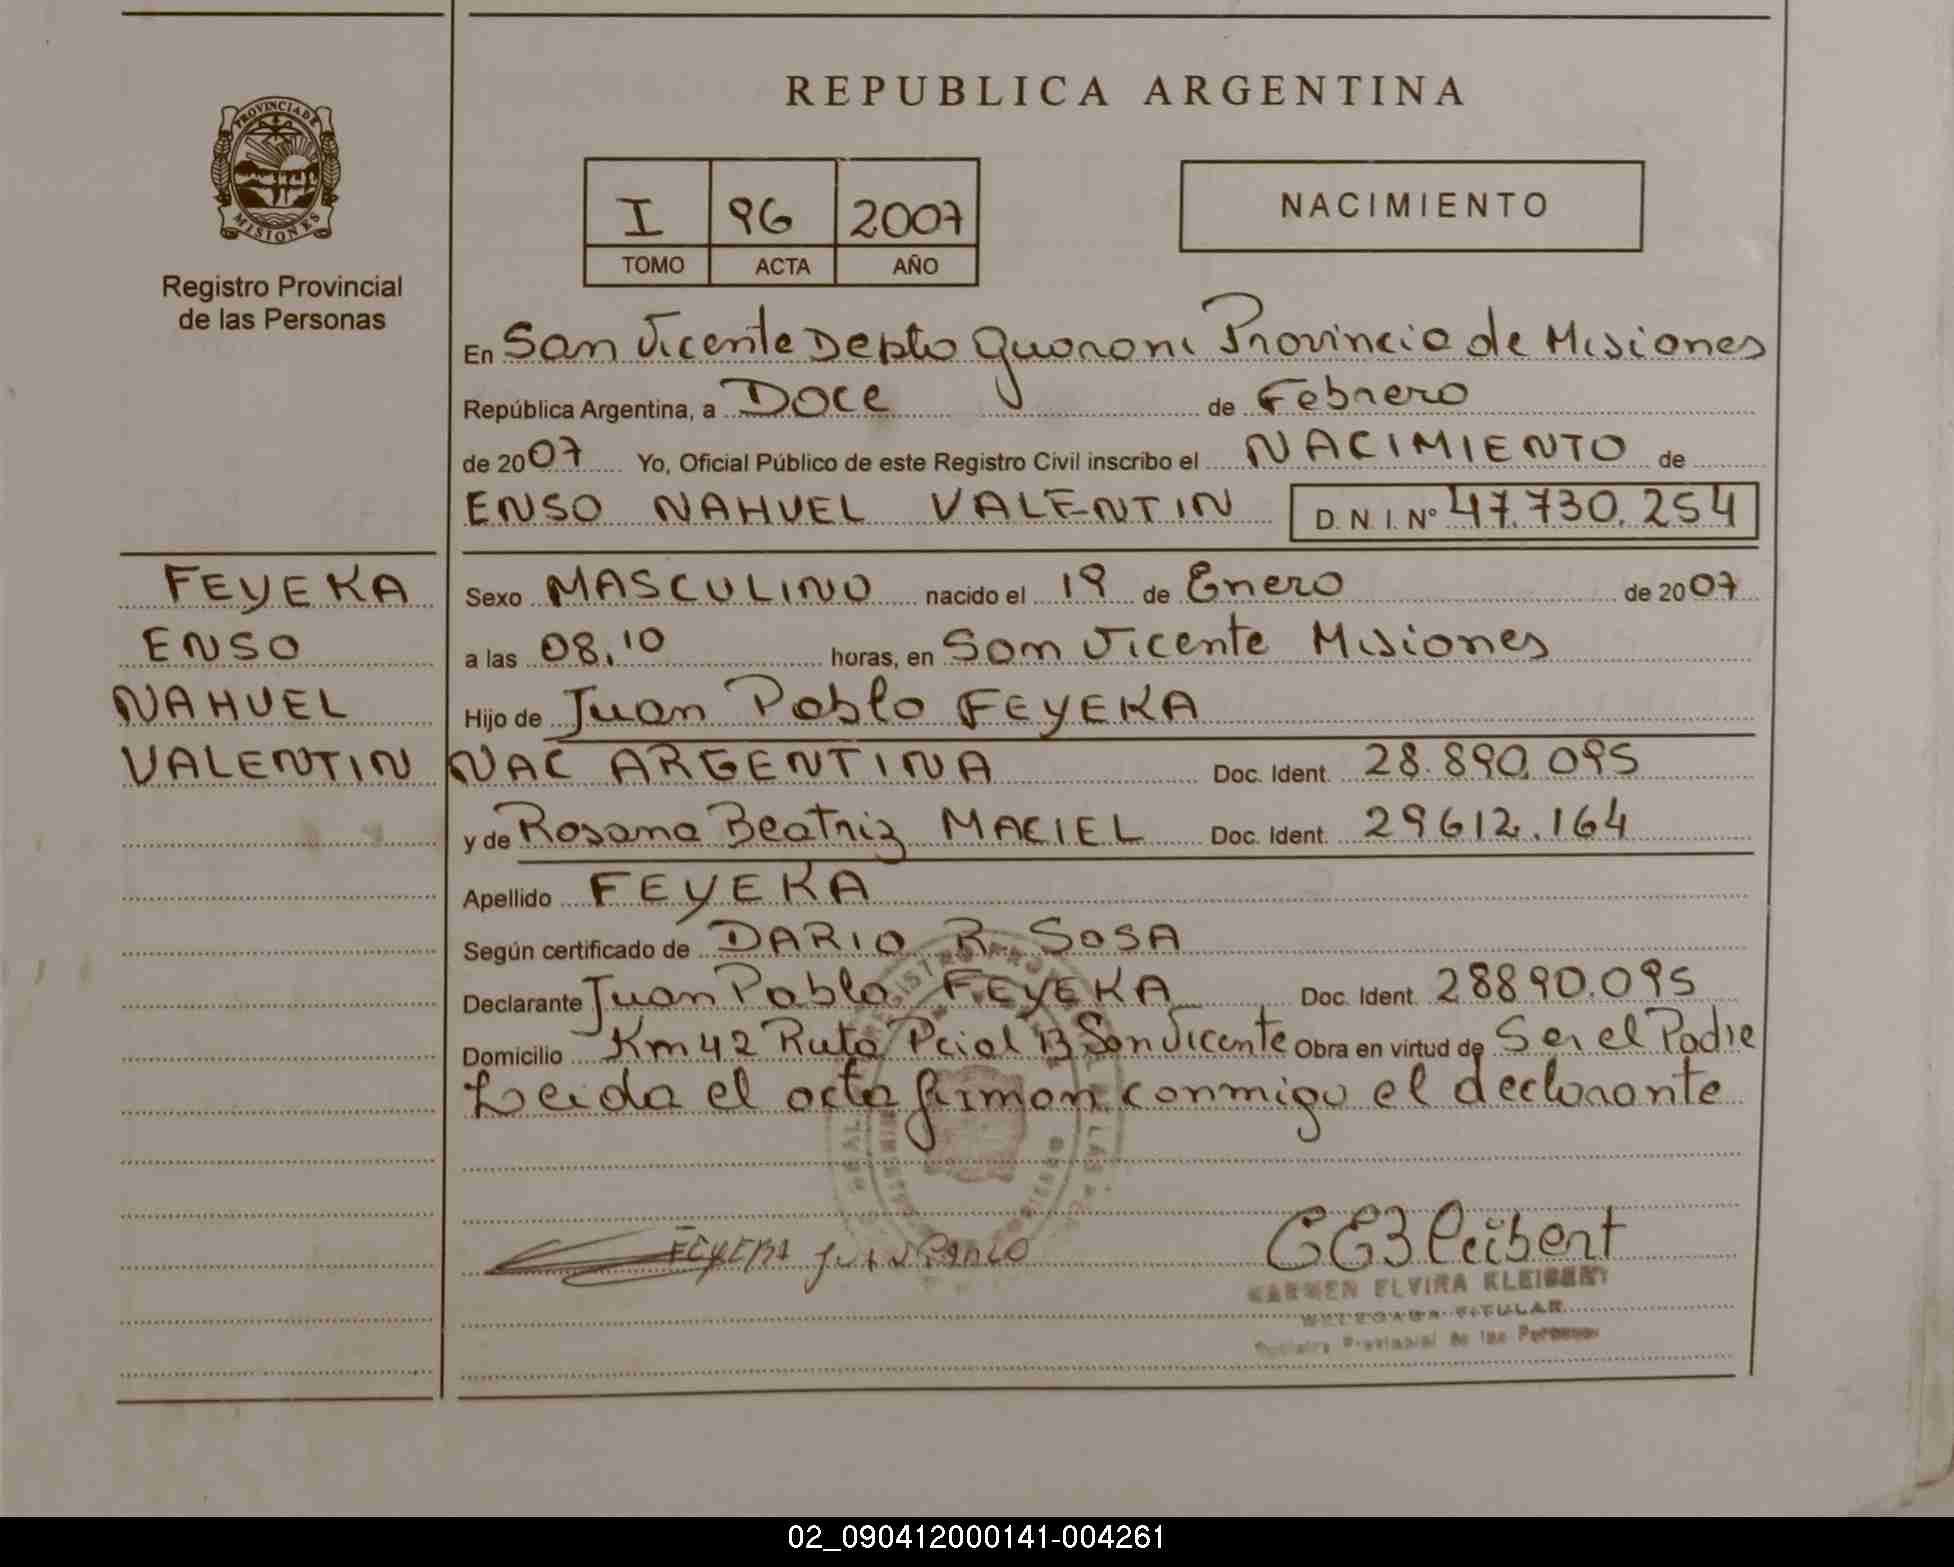 REPUBLICA ARGENTINA
PROVINCIA DE MISIONES
Registro Provincial
de las Personas
I 96 2007
TOMO ACTA AÑO
NACIMIENTO
En San Vicente Depto Guarani Provincia de Misiones
República Argentina, a Doce de Febrero
de 2007 Yo, Oficial Público de este Registro Civil inscribo el NACIMIENTO de
ENSO NAHUEL VALENTIN D.N.I. Nº 47.730.254
FEYEKA
ENSO
NAHUEL
VALENTIN
Sexo MASCULINO nacido el 19 de Enero de 2007
a las 08,10 horas, en San Vicente Misiones
Hijo de Juan Pablo FEYEKA
NAC ARGENTINA Doc. Ident. 28.890.095
y de Rosana Beatriz MACIEL Doc. Ident. 29612.164
Apellido FEYEKA
Según certificado de DARIO R. SOSA
Declarante Juan Pablo FEYEKA Doc. Ident. 28890.095
Domicilio Km 42 Ruta Pcial 13 San Vicente Obra en virtud de Ser el Padre
Leida el acta firman conmigo el declarante
FEYEKA Juan Pablo
KARMEN ELVIRA KLEIBERT
DELEGADA TITULAR
Registro Provincial de las Personas
02_090412000141-004261